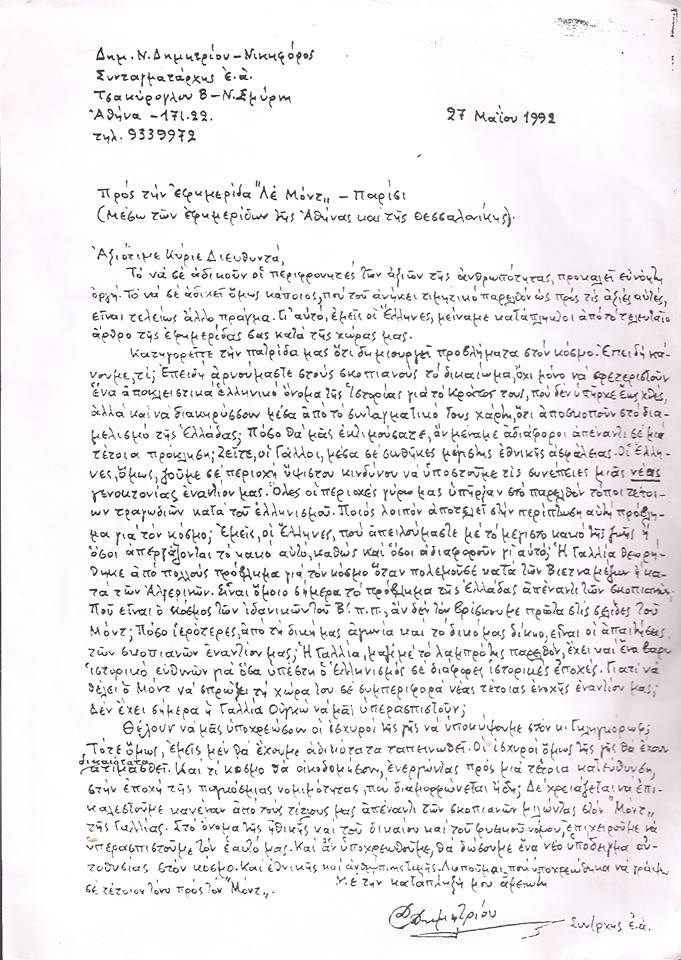 Δημ. Ν. Δημητρίου – Νικηφόρος
Συνταγματάρχης ἐ.ἀ.
Τσακύρογλου 8 – Ν. Σμύρνη
Ἀθήνα – 171.22.
τηλ. 9339972
27 Μαΐου 1992
Πρός τήν ἐφημερίδα "Λέ Μόντ„ – Παρίσι
(Μέσω τῶν ἐφημερίδων τῆς Ἀθήνας καί τῆς Θεσσαλονίκης).
Ἀξιότιμε Κύριε Διευθυντά,
Τό νά σέ ἀδικοῦν οἱ περιφρονητές τῶν ἀξιῶν τῆς ἀνθρωπότητας, προκαλεῖ εὐνόητη
ὀργή. Τό νά σέ ἀδικεῖ ὅμως κάποιος, πού τοῦ ἀνήκει τιμητικό παρελθόν ὡς πρός τίς ἀξίες αὐτές,
εἶναι τελείως ἄλλο πράγμα. Γι' αὐτό, ἐμεῖς οἱ Ἕλληνες, μείναμε κατάπληκτοι ἀπό τό τελευταῖο
ἄρθρο τῆς ἐφημερίδας σας κατά τῆς χώρας μας.
Κατηγορεῖτε τήν πατρίδα μας ὅτι δημιουργεῖ προβλήματα στόν κόσμο. Ἐπειδή κά-
νουμε, τί; Ἐπειδή ἀρνούμαστε στούς σκοπιανούς τό δικαίωμα, ὄχι μόνο νά σφετεριστοῦν
ἕνα ἀποκλειστικά ἑλληνικό ὄνομα τῆς Ἱστορίας γιά τό Κράτος τους, πού δέν ὑπῆρχε ἕως χθές,
ἀλλά καί νά διακηρύσσουν μέσα ἀπό τό συνταγματικό τους χάρτη, ὅτι ἀποσκοποῦν στό δια-
μελισμό τῆς Ἑλλάδας; Πόσο θά μᾶς ἐκτιμούσατε, ἄν μέναμε ἀδιάφοροι ἀπέναντι σέ μιά
τέτοια πρόκληση; Ζεῖτε, οἱ Γάλλοι, μέσα σέ συνθῆκες μέγιστης ἐθνικῆς ἀσφάλειας. Οἱ Ἕλλη-
νες, ὅμως, ζοῦμε σέ περιοχή ὕψιστου κινδύνου νά ὑποστοῦμε τίς συνέπειες μιᾶς νέας
γενοκτονίας ἐναντίον μας. Ὅλες οἱ περιοχές γύρω μας ὑπῆρξαν στό παρελθόν τόποι τέτοι-
ων τραγωδιῶν κατά τοῦ ἑλληνισμοῦ. Ποιός λοιπόν ἀποτελεῖ στήν περίπτωση αὐτή πρόβλη-
μα γιά τόν κόσμο; Ἐμεῖς, οἱ Ἕλληνες, πού ἀπειλούμαστε μέ τό μέγιστο κακό τῆς ζωῆς ἤ
ὅσοι ἀπεργάζονται τό κακό αὐτό, καθώς καί ὅσοι ἀδιαφοροῦν γι' αὐτό; Ἡ Γαλλία θεωρή-
θηκε ἀπό πολλούς πρόβλημα γιά τόν κόσμο ὅταν πολεμοῦσε κατά τῶν Βιετναμέζων ἤ κα-
τά τῶν Ἀλγερινῶν. Εἶναι ὅμοιο σήμερα τό πρόβλημα τῆς Ἑλλάδας ἀπέναντι τῶν σκοπιανῶν;
Ποῦ εἶναι ὁ κόσμος τῶν ἰδανικῶν τοῦ Β'. π.π., ἄν δέν τόν βρίσκουμε πρῶτα στίς σελίδες τοῦ
Μόντ; Πόσο ἱερότερες, ἀπό τή δική μας ἀγωνία καί τό δικό μας δίκιο, εἶναι οἱ ἀπαιτήσεις
τῶν σκοπιανῶν ἐναντίον μας; Ἡ Γαλλία, μαζί μέ τό λαμπρό της παρελθόν, ἔχει καί ἕνα βαρύ
ἱστορικό εὐθυνῶν γιά ὅσα ὑπέστη ὁ Ἑλληνισμός σέ διάφορες ἱστορικές ἐποχές. Γιατί νά
θέλει ὁ Μόντ νά σπρώξει τή χώρα του σέ συμπεριφορά νέας τέτοιας ἐνοχῆς ἐναντίον μας;
Δέν ἔχει σήμερα ἡ Γαλλία Οὑγκώ νά μᾶς ὑπερασπιστοῦν;
Θέλουν νά μᾶς ὑποχρεώσουν οἱ ἰσχυροί τῆς γῆς νά ὑποκύψουμε στόν κ. Γκλιγκόρωφ;
Τότε ὅμως, ἐμεῖς μέν θά ἔχουμε ἀδικότατα ταπεινωθεῖ. Οἱ ἰσχυροί ὅμως τῆς γῆς θά ἔχουν
δικαιότατα
ἀτιμασθεῖ. Καί τί κόσμο θά οἰκοδομήσουν, ἐνεργώντας πρός μιά τέτοια κατεύθυνση,
στήν ἐποχή τῆς παγκόσμιας νομιμότητας, πού διαμορφώνεται ἤδη; Δέ χρειάζεται νά ἐπι-
καλεστοῦμε κανέναν ἀπό τούς τίτλους μας ἀπέναντι τῶν σκοπιανῶν μιλώντας στόν "Μόντ„
τῆς Γαλλίας. Στό ὄνομα τῆς ἠθικῆς καί τοῦ δικαίου καί τοῦ φυσικοῦ νόμου, ἐπιχειροῦμε νά
ὑπερασπιστοῦμε τόν ἑαυτό μας. Καί ἄν ὑποχρεωθοῦμε, θά δώσουμε ἕνα νέο ὑπόδειγμα αὐ-
τοθυσίας στόν κόσμο. Καί ἐθνικῆς καί ἀνθρώπινης τιμῆς. Λυποῦμαι πού ὑποχρεώθηκα νά γράψω
σέ τέτοιον τόνο πρός τόν "Μόντ„.
Μέ τήν κατάπληξή μου ἀμείωτη
Δ Δημητρίου
Συντ/ρχης ἐ.ἀ.